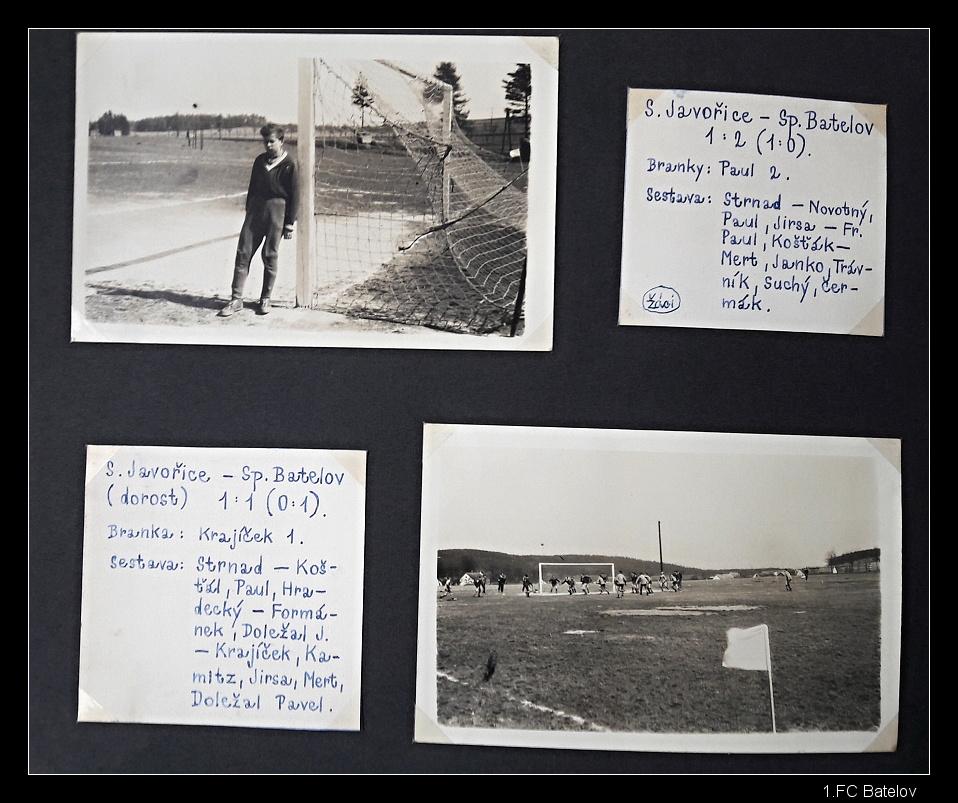 S. Javořice – Sp. Batelov
1:2 (1:0).
Branky: Paul 2.
Sestava: Strnad – Novotný,
Paul, Jirsa – Fr.
Paul, Košťák –
Mert, Janko, Tráv-
ník, Suchý, Čer-
mák.
Žáci
S. Javořice – Sp. Batelov
(dorost) 1:1 (0:1).
Branka: Krajíček 1.
Sestava: Strnad – Koš-
ťál, Paul, Hra-
decký – Formá-
nek, Doležal J.
– Krajíček, Ka-
mitz, Jirsa, Mert,
Doležal Pavel.
1.FC Batelov